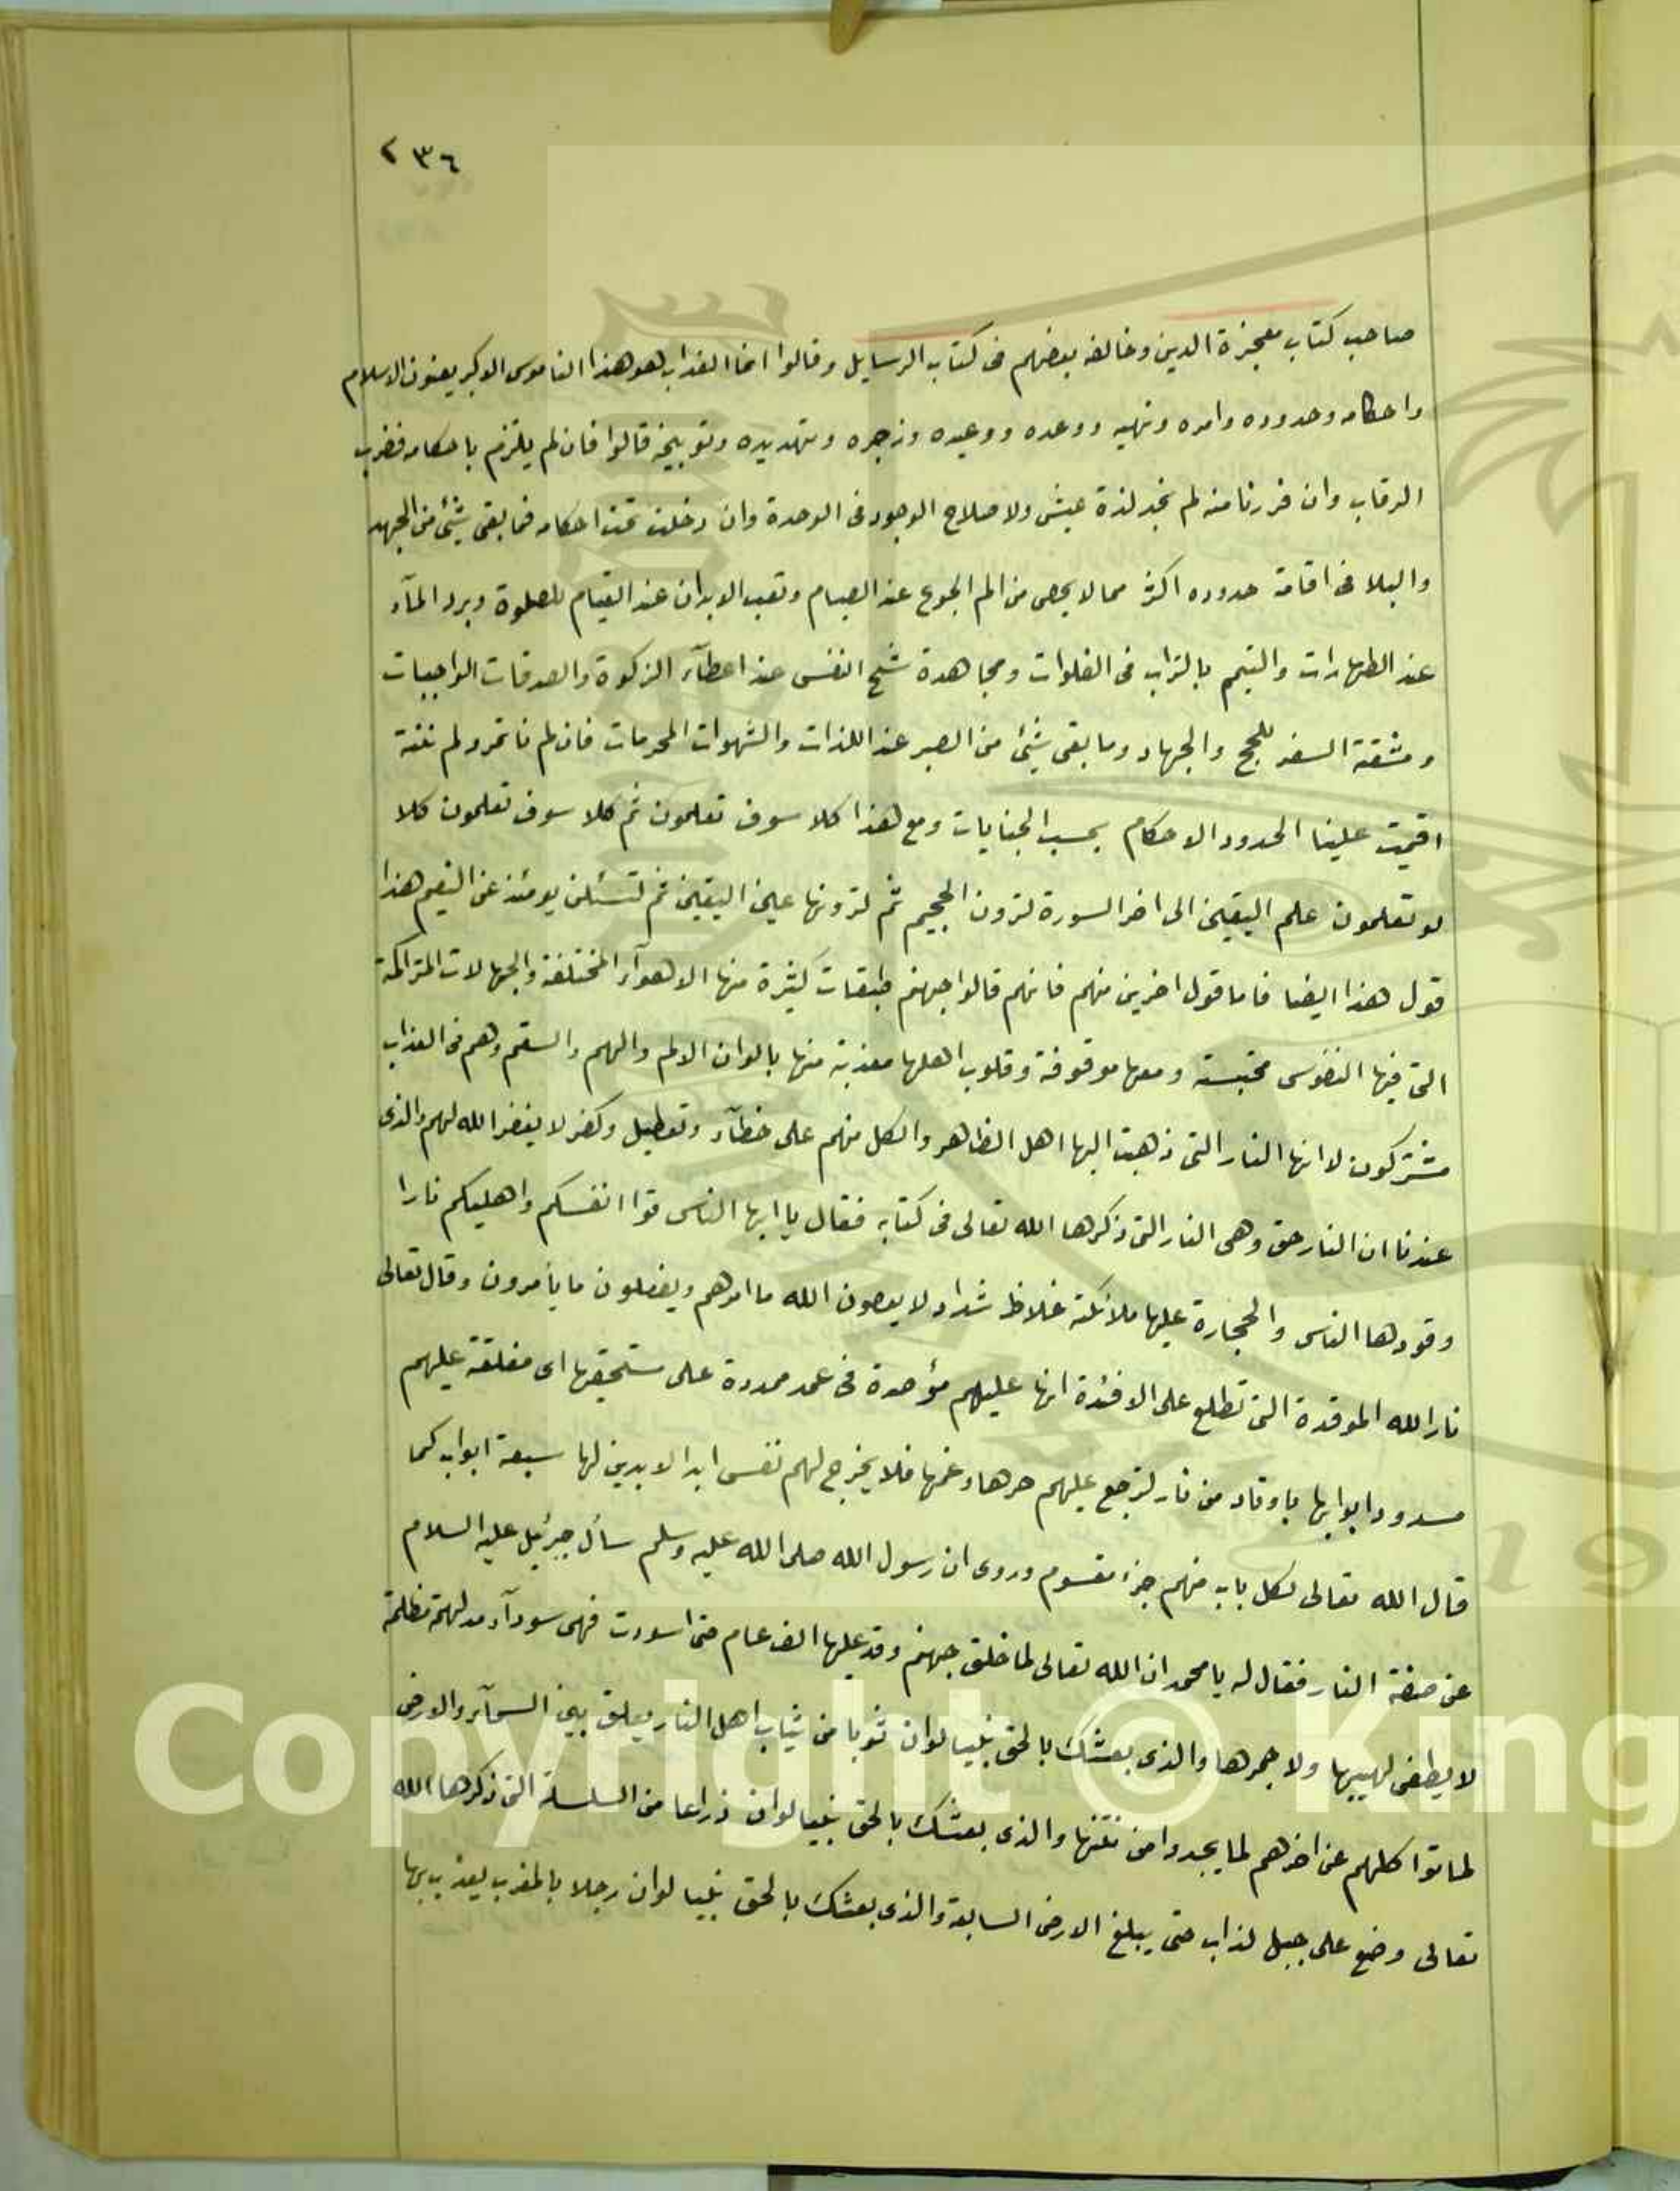 ٢٣٦
صاحب كتاب معجزة الدين وخالفه بعضهم فى كتاب الرسايل وقالوا انما العذاب هو هذا الناموس الاكبر يعنون الاسلام
واحكامه وحدوده وامره ونهيه ووعده ووعيده وزجره وتهديده وتوبيخه قالوا فان لم يلتزم باحكامه فضرب
الرقاب وان فررنا منه لم نجد لذة عيش ولا صلاح الوجود فى الوحدة وان دخلت تحت احكامه فما بقى شئ من الجهد
والبلا فى اقامة حدوده اكثر مما لا يحصى من الم الجوع عند الصيام وتعب الابدان عند القيام للصلوة وبرد المآء
عند الطهارات والتيمم بالتراب فى الفلوات ومجاهدة شح النفس عند اعطآء الزكوة والصدقات الواجبات
ومشقة السفر للحج والجهاد وما بقى شئ من الصبر عند اللذات والشهوات المحرمات فان لم نأتمر ولم ننته
اقيمت علينا الحدود الاحكام بحسب الجنايات ومع هذا كلا سوف تعلمون ثم كلا سوف تعلمون كلا
لو تعلمون علم اليقين الى اخر السورة لترون الجحيم ثم لترونها عين اليقين ثم لتسئلن يومئذ عن النعيم هذا
قول هذا ايضا فاما قول اخرين منهم فانهم قالوا جهنم طبقات كثيرة منها الاهوآء المختلفة والجهالات المتراكمة
التى فيها النفوس محتبسة ومعها موقوفة وقلوب اهلها معذبة منها بالوان الالم والهم والسقم وهم فى العذاب
مشتركون لا انها النار التى ذهبت اليها اهل الظاهر والكل منهم على خطآء وتعطيل وكفر لا يغفر الله لهم والذى
عندنا ان النار حق وهى النار التى ذكرها الله تعالى فى كتابه فقال يا ايها الناس قوا انفسكم واهليكم نارا
وقودها الناس والحجارة عليها ملائكة غلاظ شداد لا يعصون الله ما امرهم ويفعلون ما يأمرون وقال تعالى
نار الله الموقدة التى تطلع على الافئدة انها عليهم مؤصدة فى عمد ممددة على مستحقها اى مغلقة عليهم
مسدود ابوابها باوتاد من نار لترجع عليهم حرها وغمها فلا يخرج لهم نفس ابد الابدين لها سبعة ابواب كما
قال الله تعالى لكل باب منهم جزء مقسوم وروى ان رسول الله صلى الله عليه وسلم سأل جبرئيل عليه السلام
عن صفة النار فقال له يا محمد ان الله تعالى لما خلق جهنم وقد عليها الف عام حتى اسودت فهى سودآء مدلهمة مظلمة
لا يطفى لهيبها ولا جمرها والذى بعثك بالحق نبيا لو ان ثوبا من ثياب اهل النار يعلق بين السمآء والارض
لماتوا كلهم عن اخرهم لما يجدوا من نتنها والذى بعثك بالحق نبيا لو ان ذراعا من السلسلة التى ذكرها الله
تعالى وضع على جبل لذاب حتى يبلغ الارض السابعة والذى بعثك بالحق نبيا لو ان رجلا بالمغرب يعذب بها
Copyright © King
19